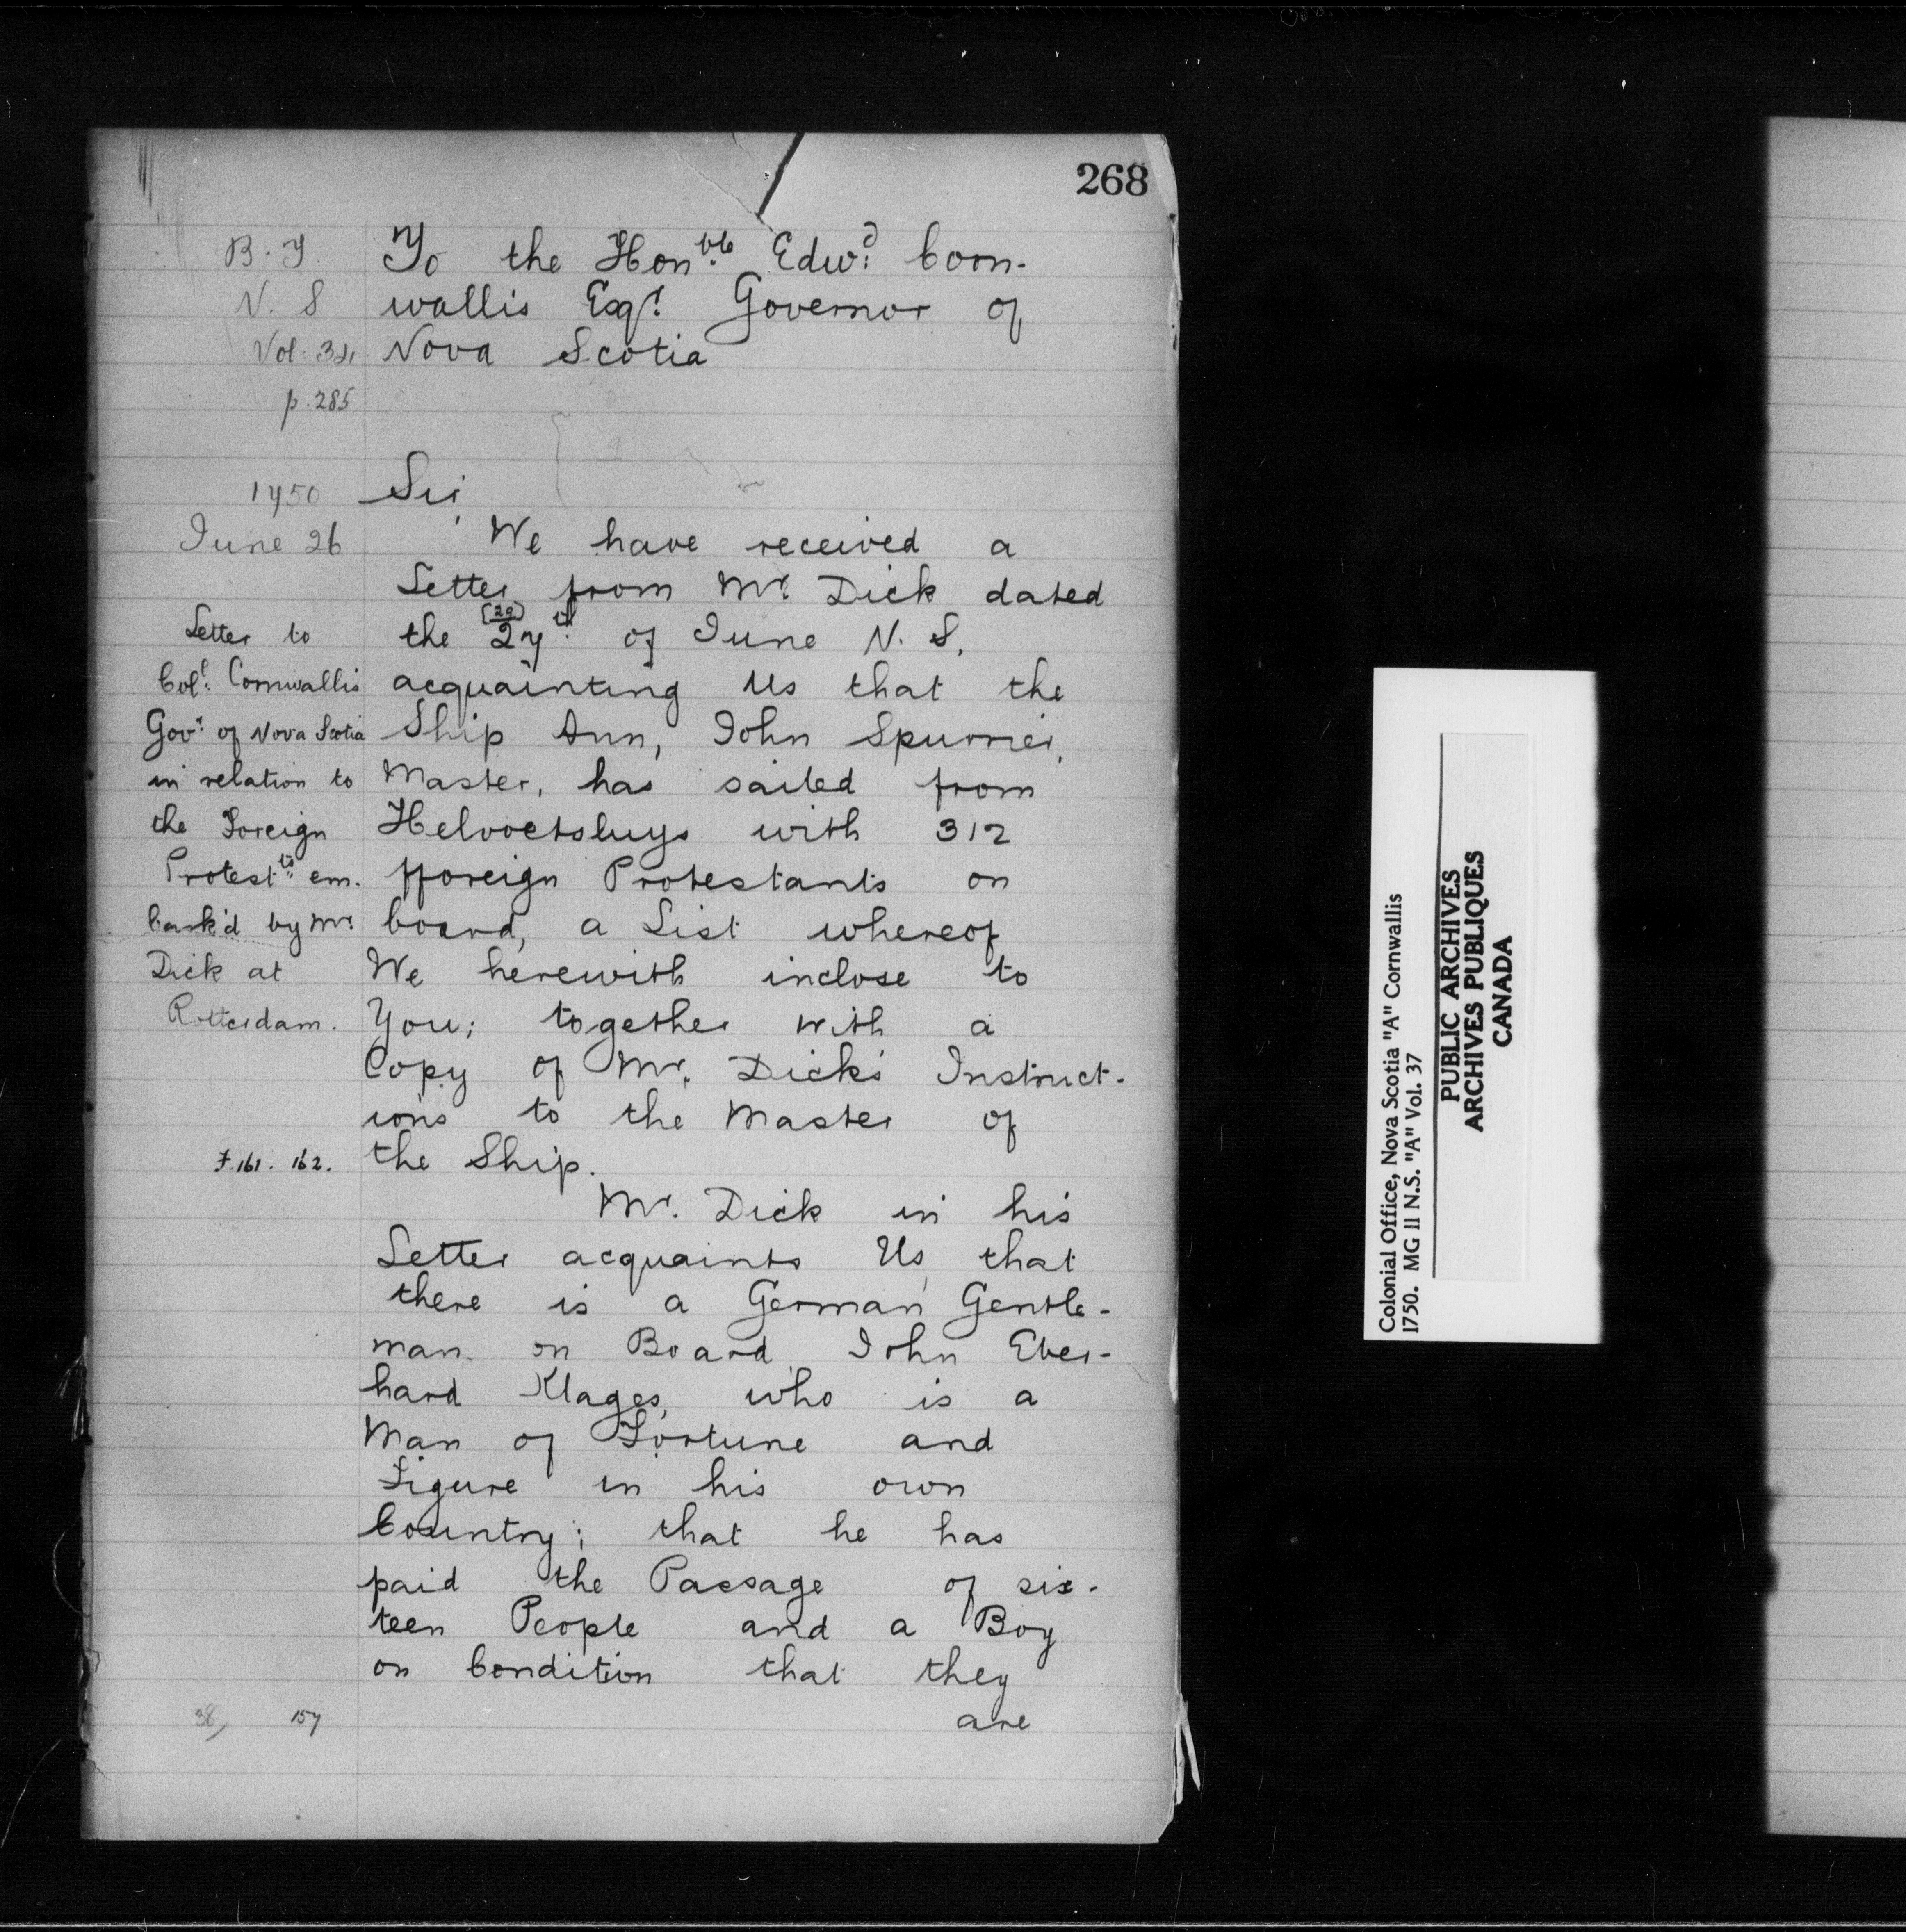 268
B. T.
N. S
Vol: 34
p. 285
To the Hon.ble Edwd: Corn-
wallis Esqr. Governor of
Nova Scotia
1750
June 26
Letter to
Coll. Cornwallis
Govr. of Nova Scotia
in relation to
the Foreign
Protestts. em-
bark'd by Mr.
Dick at
Rotterdam.
F. 161. 162.
Sir,
We have received a
Letter from Mr. Dick dated
the 27th. of June N. S.
acquainting Us that the
Ship Ann, John Spurrier,
Master, has sailed from
Helvoetsluys with 312
fforeign Protestants on
board, a List whereof
We herewith inclose to
You; together with a
Copy of Mr. Dick's Instruct-
ions to the Master of
the Ship.
Mr. Dick in his
Letter acquaints Us, that
there is a German Gentle-
man on Board, John Eber-
hard Klages, who is a
Man of Fortune and
Figure in his own
Country; that he has
paid the Passage of six-
teen People and a Boy
on Condition that they
are
38, 157
Colonial Office, Nova Scotia "A" Cornwallis
1750. MG 11 N.S. "A" Vol. 37
PUBLIC ARCHIVES
ARCHIVES PUBLIQUES
CANADA